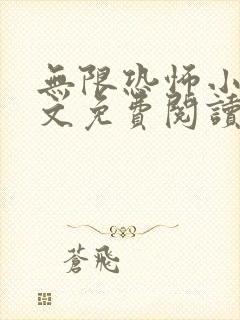 無限恐怖小
文免費閱讀
蒼飛